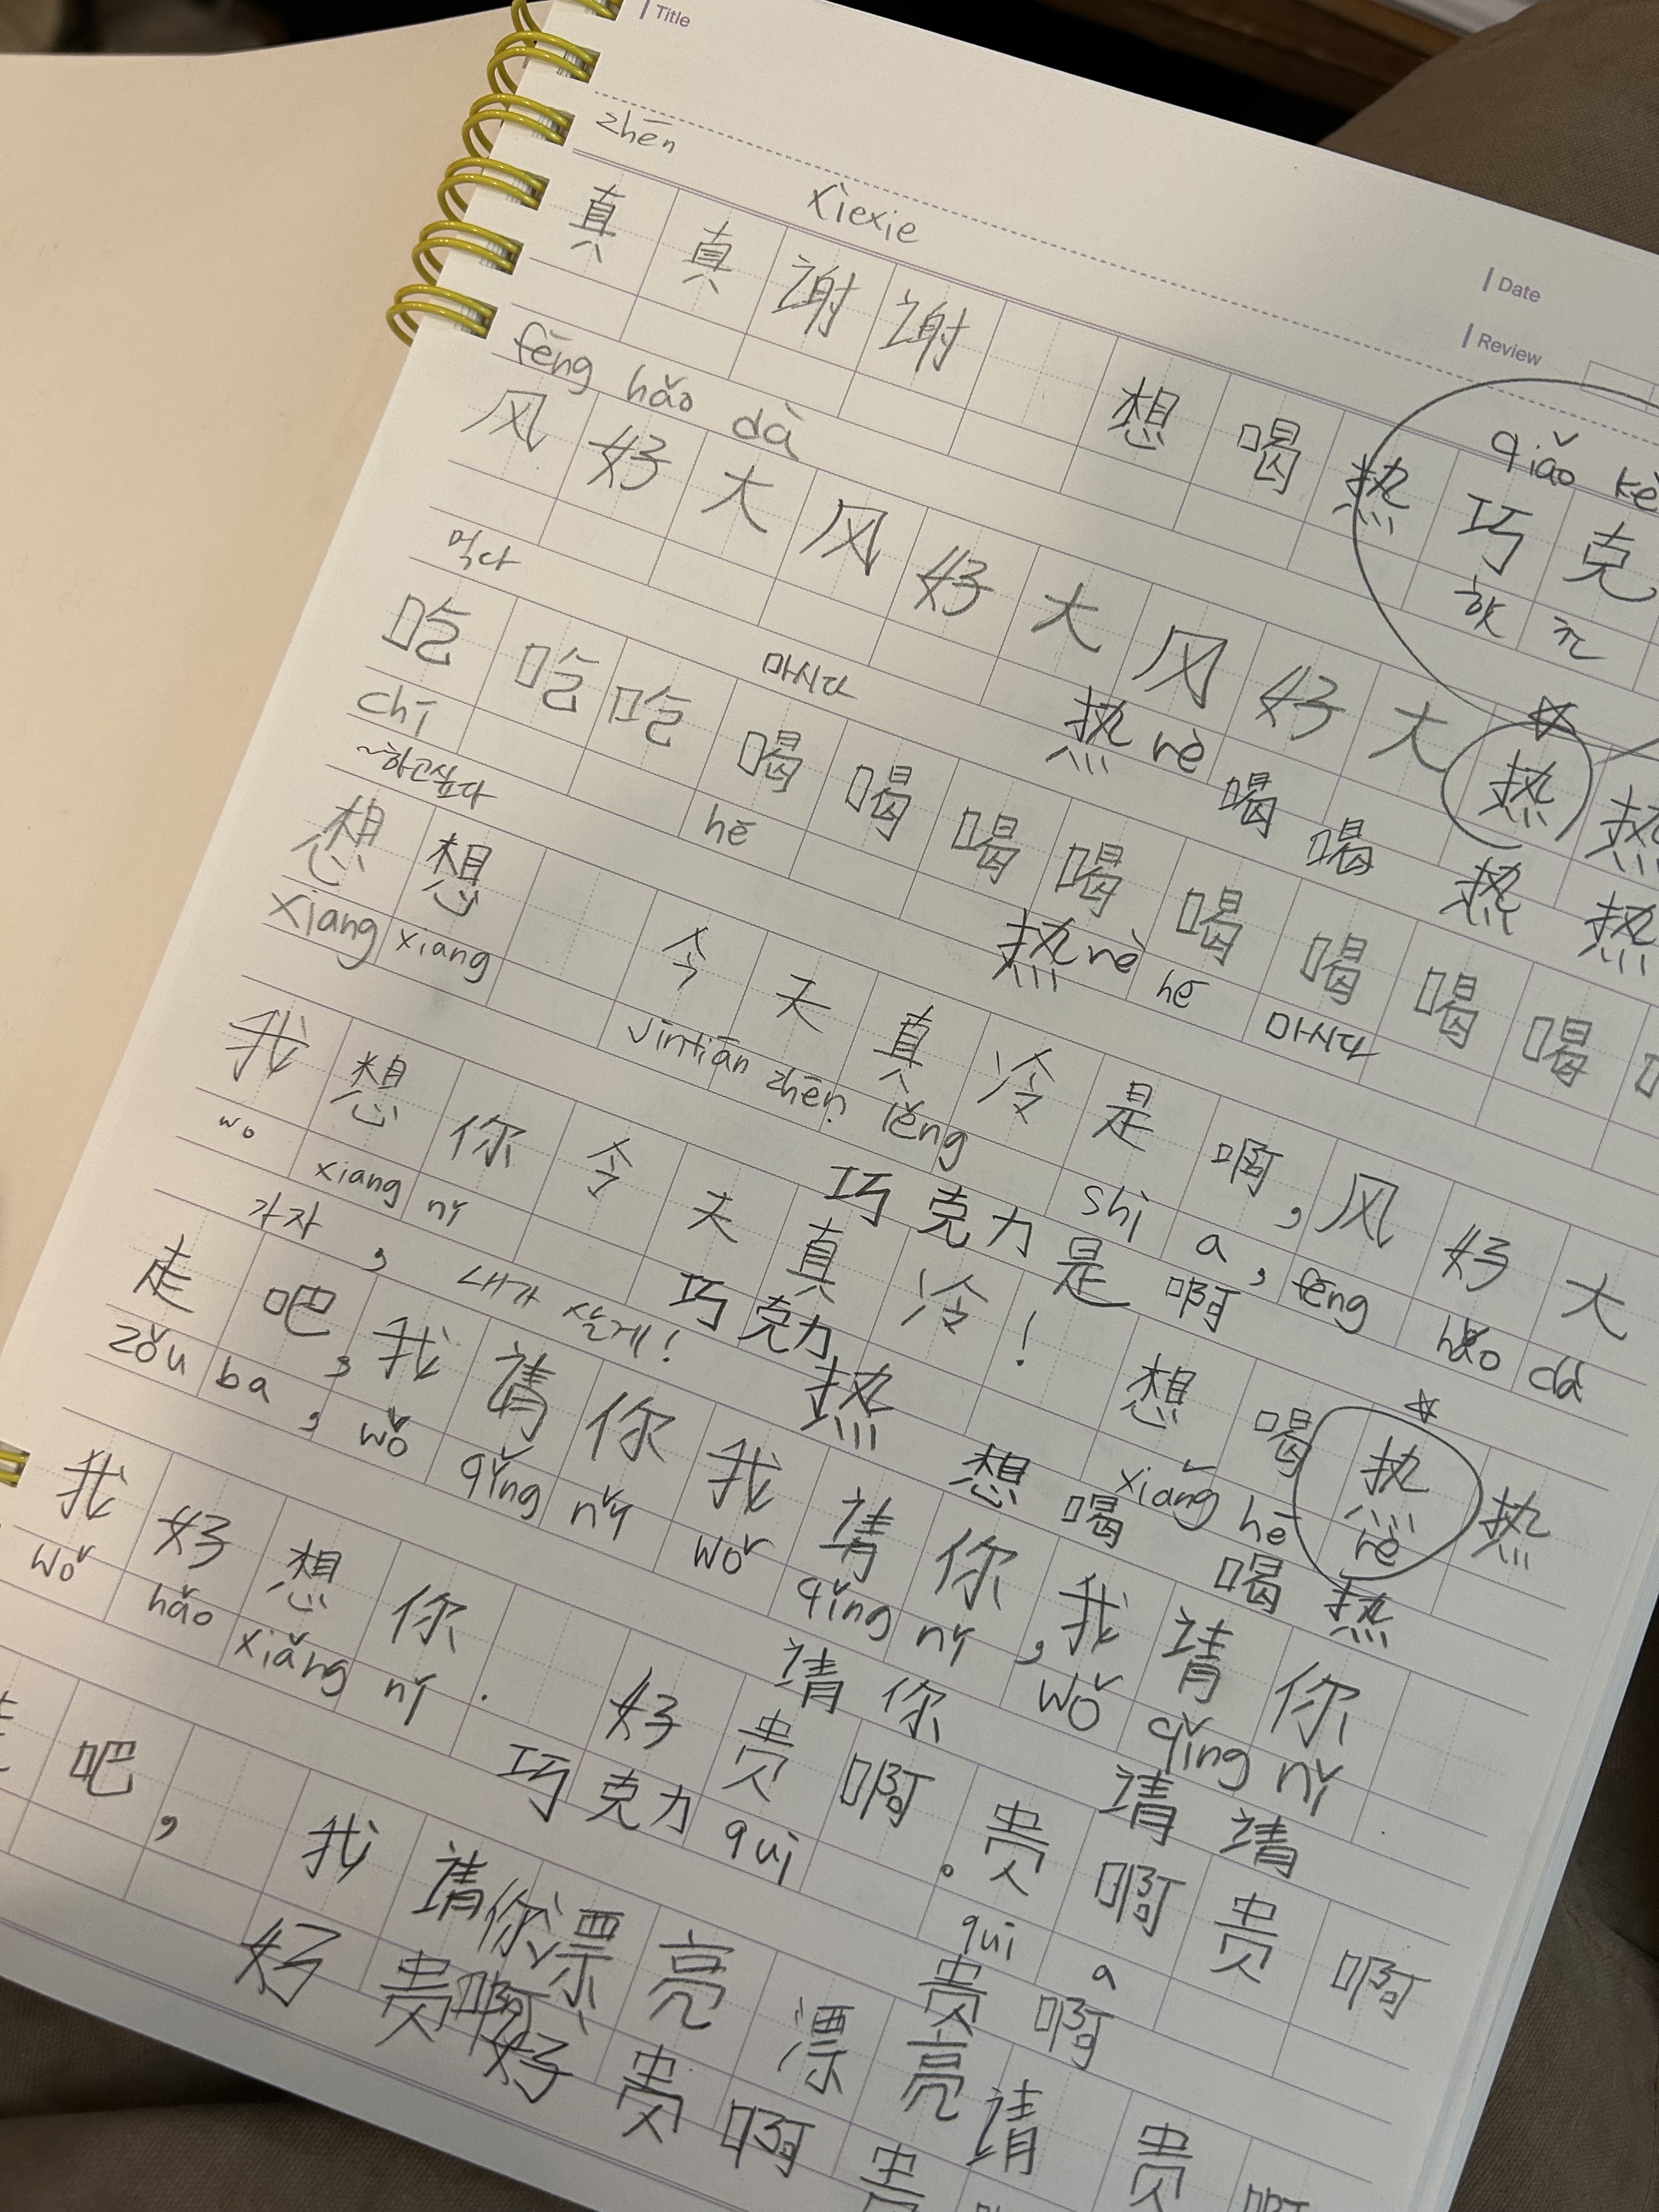 Title
zhēn
xièxie
Date
真 真 谢 谢
Review
想 喝 热 巧 克
qiǎo kè
fēng hǎo dà
风 好 大 风 好 大 风 好 大 热 热
먹다
마시다
热 rè 喝 喝 热 热
吃 吃 吃 喝 喝 喝 喝 喝 喝 喝 喝
chī
hē
热 rè hē 마시다
~하고싶다
想 想 今 天 真 冷 是 啊, 风 好 大
xiang xiang jīntiān zhēn lěng shì a, fēng hǎo dà
巧 克 力 是 啊
我 想 你 今 天 真 冷! 想 喝 热 热
wo xiang nǐ
xiǎng hē rè
巧 克 力 热 想 喝 喝 热
가자, 내가 살게!
走 吧, 我 请 你 我 请 你, 我 请 你
zǒu ba, wǒ qǐng nǐ wǒ qǐng nǐ, wǒ qǐng nǐ.
请 你 请 请
我 好 想 你. 好 贵 啊。贵 啊 贵 啊
wǒ hǎo xiǎng nǐ.
巧 克 力 qui qui a
贵 啊
吧, 我 请 你 漂 亮 漂 亮 请 贵 啊
好 贵 啊 好 贵 啊 贵